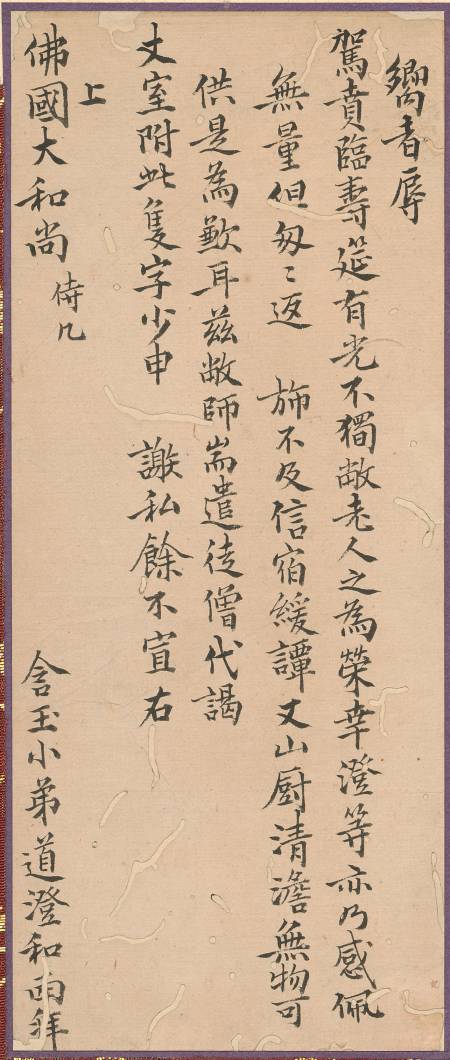 嚮者辱
駕賁臨壽筵有光不獨敝老人之為榮幸澄等亦乃感佩
無量但匆〻返　旆不及信宿緩譚丈山廚清澹無物可
供是為歉耳茲敝師耑遣徒僧代謁
丈室附此隻字少申　謝私餘不宣右
上
佛國大和尚 侍几
含玉小弟道澄和南拜